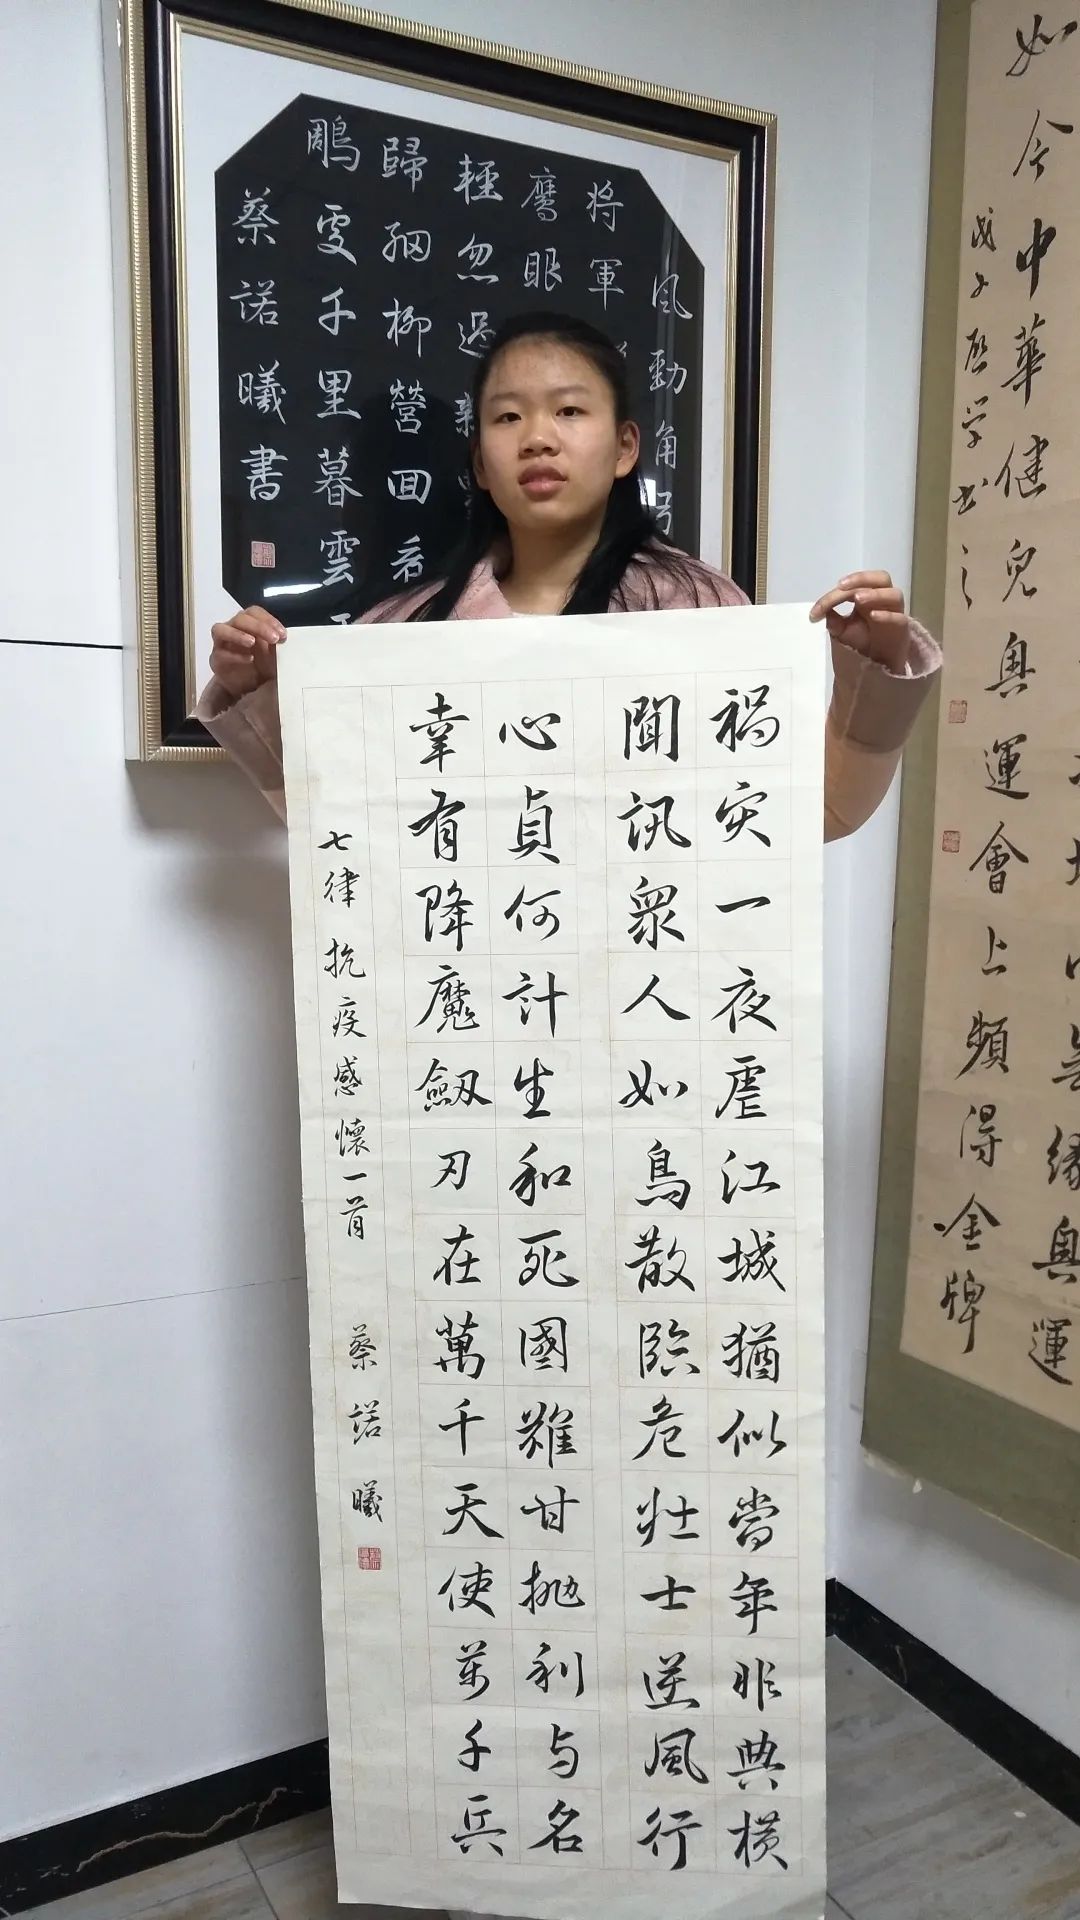 風勁角弓
将軍
鷹眼
輕忽過新
歸細柳營回看
鵰處千里暮雲
蔡諾曦書
無緣奥運
如今中華健兒奥運會上頻得金牌
戊子
学书
祸灾一夜虐江城猶似當年非典横
聞訊衆人如鳥散臨危壯士逆風行
心貞何計生和死國難甘抛利与名
幸有降魔劔刃在萬千天使萬千兵
七律 抗疫感懷一首 蔡諾曦